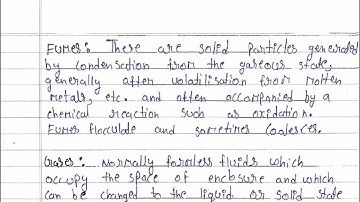 Fumes: These are solid particles generated
by condensation from the gaseous state,
generally after volatilisation from molten
metals, etc. and often accompanied by a
chemical reaction such as oxidation.
Fumes flocculade and sometimes coalesces.
Gases: Normally formless fluids which
occupy the space of enclosure and which
can be changed to the liquid or solid state